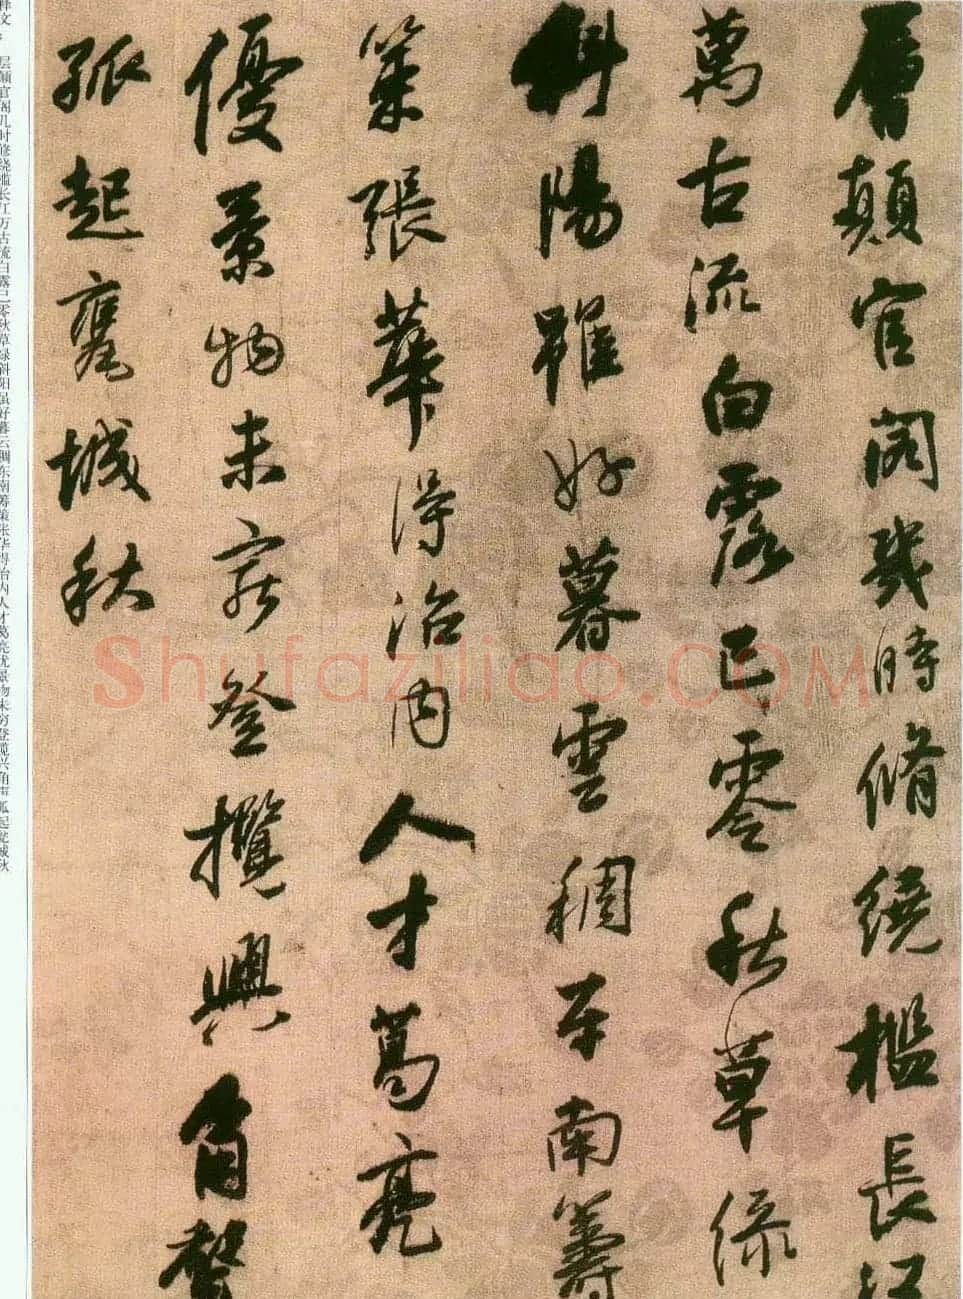 層顛官阁幾時脩繞檻長江
萬古流白露已零秋草緑
斜陽雖好暮雲稠东南籌
策張華得治内人才葛亮
優景物未窮登攬興角聲
孤起甕城秋
释文：层颠官阁几时修绕槛长江万古流白露已零秋草绿斜阳虽好暮云稠东南筹策张华得治内人才葛亮优景物未穷登揽兴角声孤起瓮城秋
Shufaziliao.COM